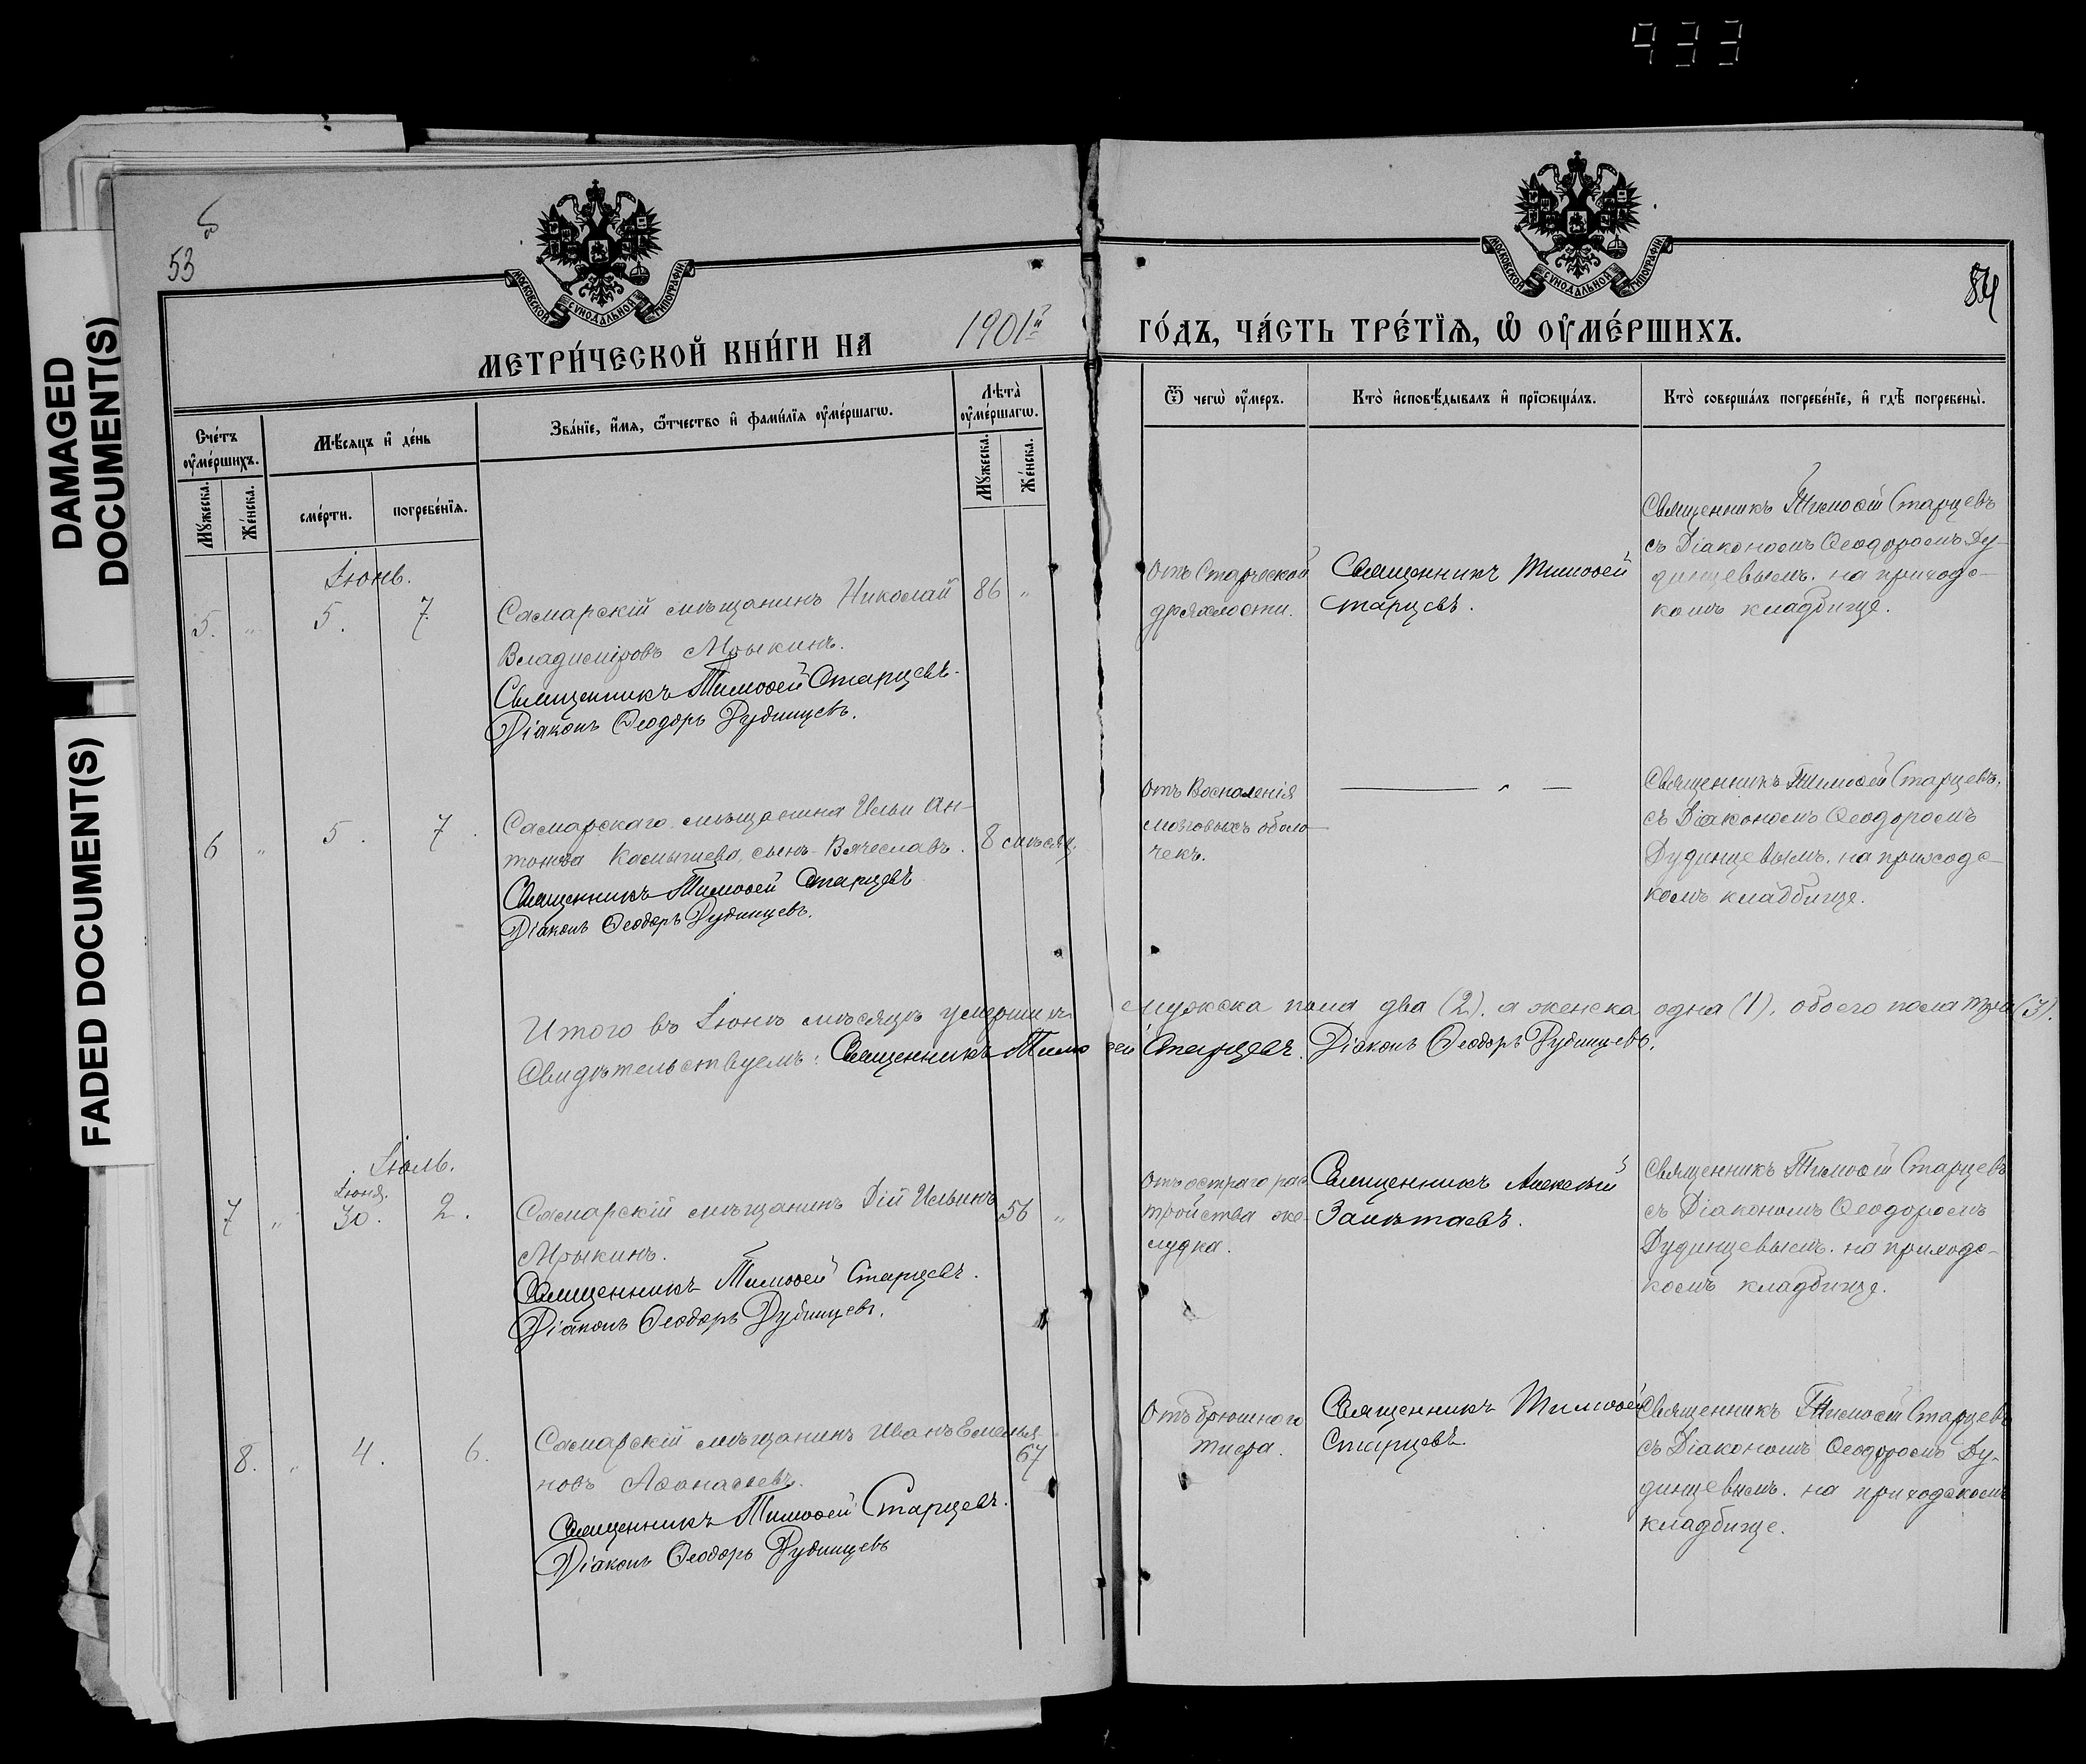 933
DAMAGED
DOCUMENT(S)
FADED DOCUMENT(S)
53
84
МОСКОВСКОЙ СУНОДАЛЬНОЙ ТИПОГРАФІИ
МОСКОВСКОЙ СУНОДАЛЬНОЙ ТИПОГРАФІИ
МЕТРИ́ЧЕСКОЙ КНИ́ГИ НА 1901й ГО́ДЪ, ЧА́СТЬ ТРЕ́ТЇѦ, Ѡ ОУМЕ́РШИХЪ.
Сче́тъ оумершихъ.
Мꙋжеска.
Же́нска.
Мѣсѧцъ и де́нь
сме́рти.
погребе́нїѧ.
Зва́нїе, и́мѧ, ѻтчество и фами́лїѧ оуме́ршагѡ.
Лѣта̀ оуме́ршагѡ.
Мꙋжеска.
Же́нска.
Ѿ чегѡ оу́меръ.
Кто̀ исповѣдывалъ и прїѡбща́лъ.
Кто̀ соверша́лъ погребе́нїе, и гдѣ погребены̀.
Іюнь.
5. „ 5. 7.
Самарскій мѣщанинъ Николай
Владиміровъ Мрыкинъ.
Священникъ Тимоѳей Старцевъ.
Діаконъ Ѳеодоръ Дудинцевъ.
86 „
Отъ Старческой
дряхлости.
Священникъ Тимоѳей
Старцевъ.
Священникъ Тимоѳей Старцевъ
съ Діакономъ Ѳеодоромъ Ду-
динцевымъ. на приходс-
комъ кладбище.
6 „ 5. 7.
Самарскаго мѣщанина Ильи Ан-
тонова Камышева, сынъ Вячеславъ.
Священникъ Тимоѳей Старцевъ
Діаконъ Ѳеодоръ Дудинцевъ.
8 мѣсяц.
Отъ Воспаленія
мозговыхъ оболо-
чекъ.
— „ —
Священникъ Тимоѳей Старцевъ.
съ Діакономъ Ѳеодоромъ
Дудинцевымъ. на приходс-
комъ кладбище.
Итого въ Іюнѣ мѣсяцѣ умершихъ мужска пола два (2). а женска одна (1), обоего пола три (3).
Свидѣтельствуемъ: Священникъ Тимоѳей Старцевъ. Діаконъ Ѳеодоръ Дудинцевъ.
Іюль.
Іюня.
7 „ 30. 2.
Самарскій мѣщанинъ Дій Ильинъ
Мрыкинъ.
Священникъ Тимоѳей Старцевъ.
Діаконъ Ѳеодоръ Дудинцевъ.
56 „
Отъ остраго рас-
тройства же-
лудка.
Священникъ Алексѣй
Заметаевъ.
Священникъ Тимоѳей Старцевъ
съ Діакономъ Ѳеодоромъ
Дудинцевымъ. на приходс-
комъ кладбище.
8. „ 4. 6.
Самарскій мѣщанинъ Иванъ Емелья-
новъ Аѳанасьевъ.
Священникъ Тимоѳей Старцевъ.
Діаконъ Ѳеодоръ Дудинцевъ
67
Отъ брюшного
тифа.
Священникъ Тимоѳей
Старцевъ.
Священникъ Тимоѳей Старцевъ
съ Діакономъ Ѳеодоромъ Ду-
динцевымъ. на приходскомъ
кладбище.